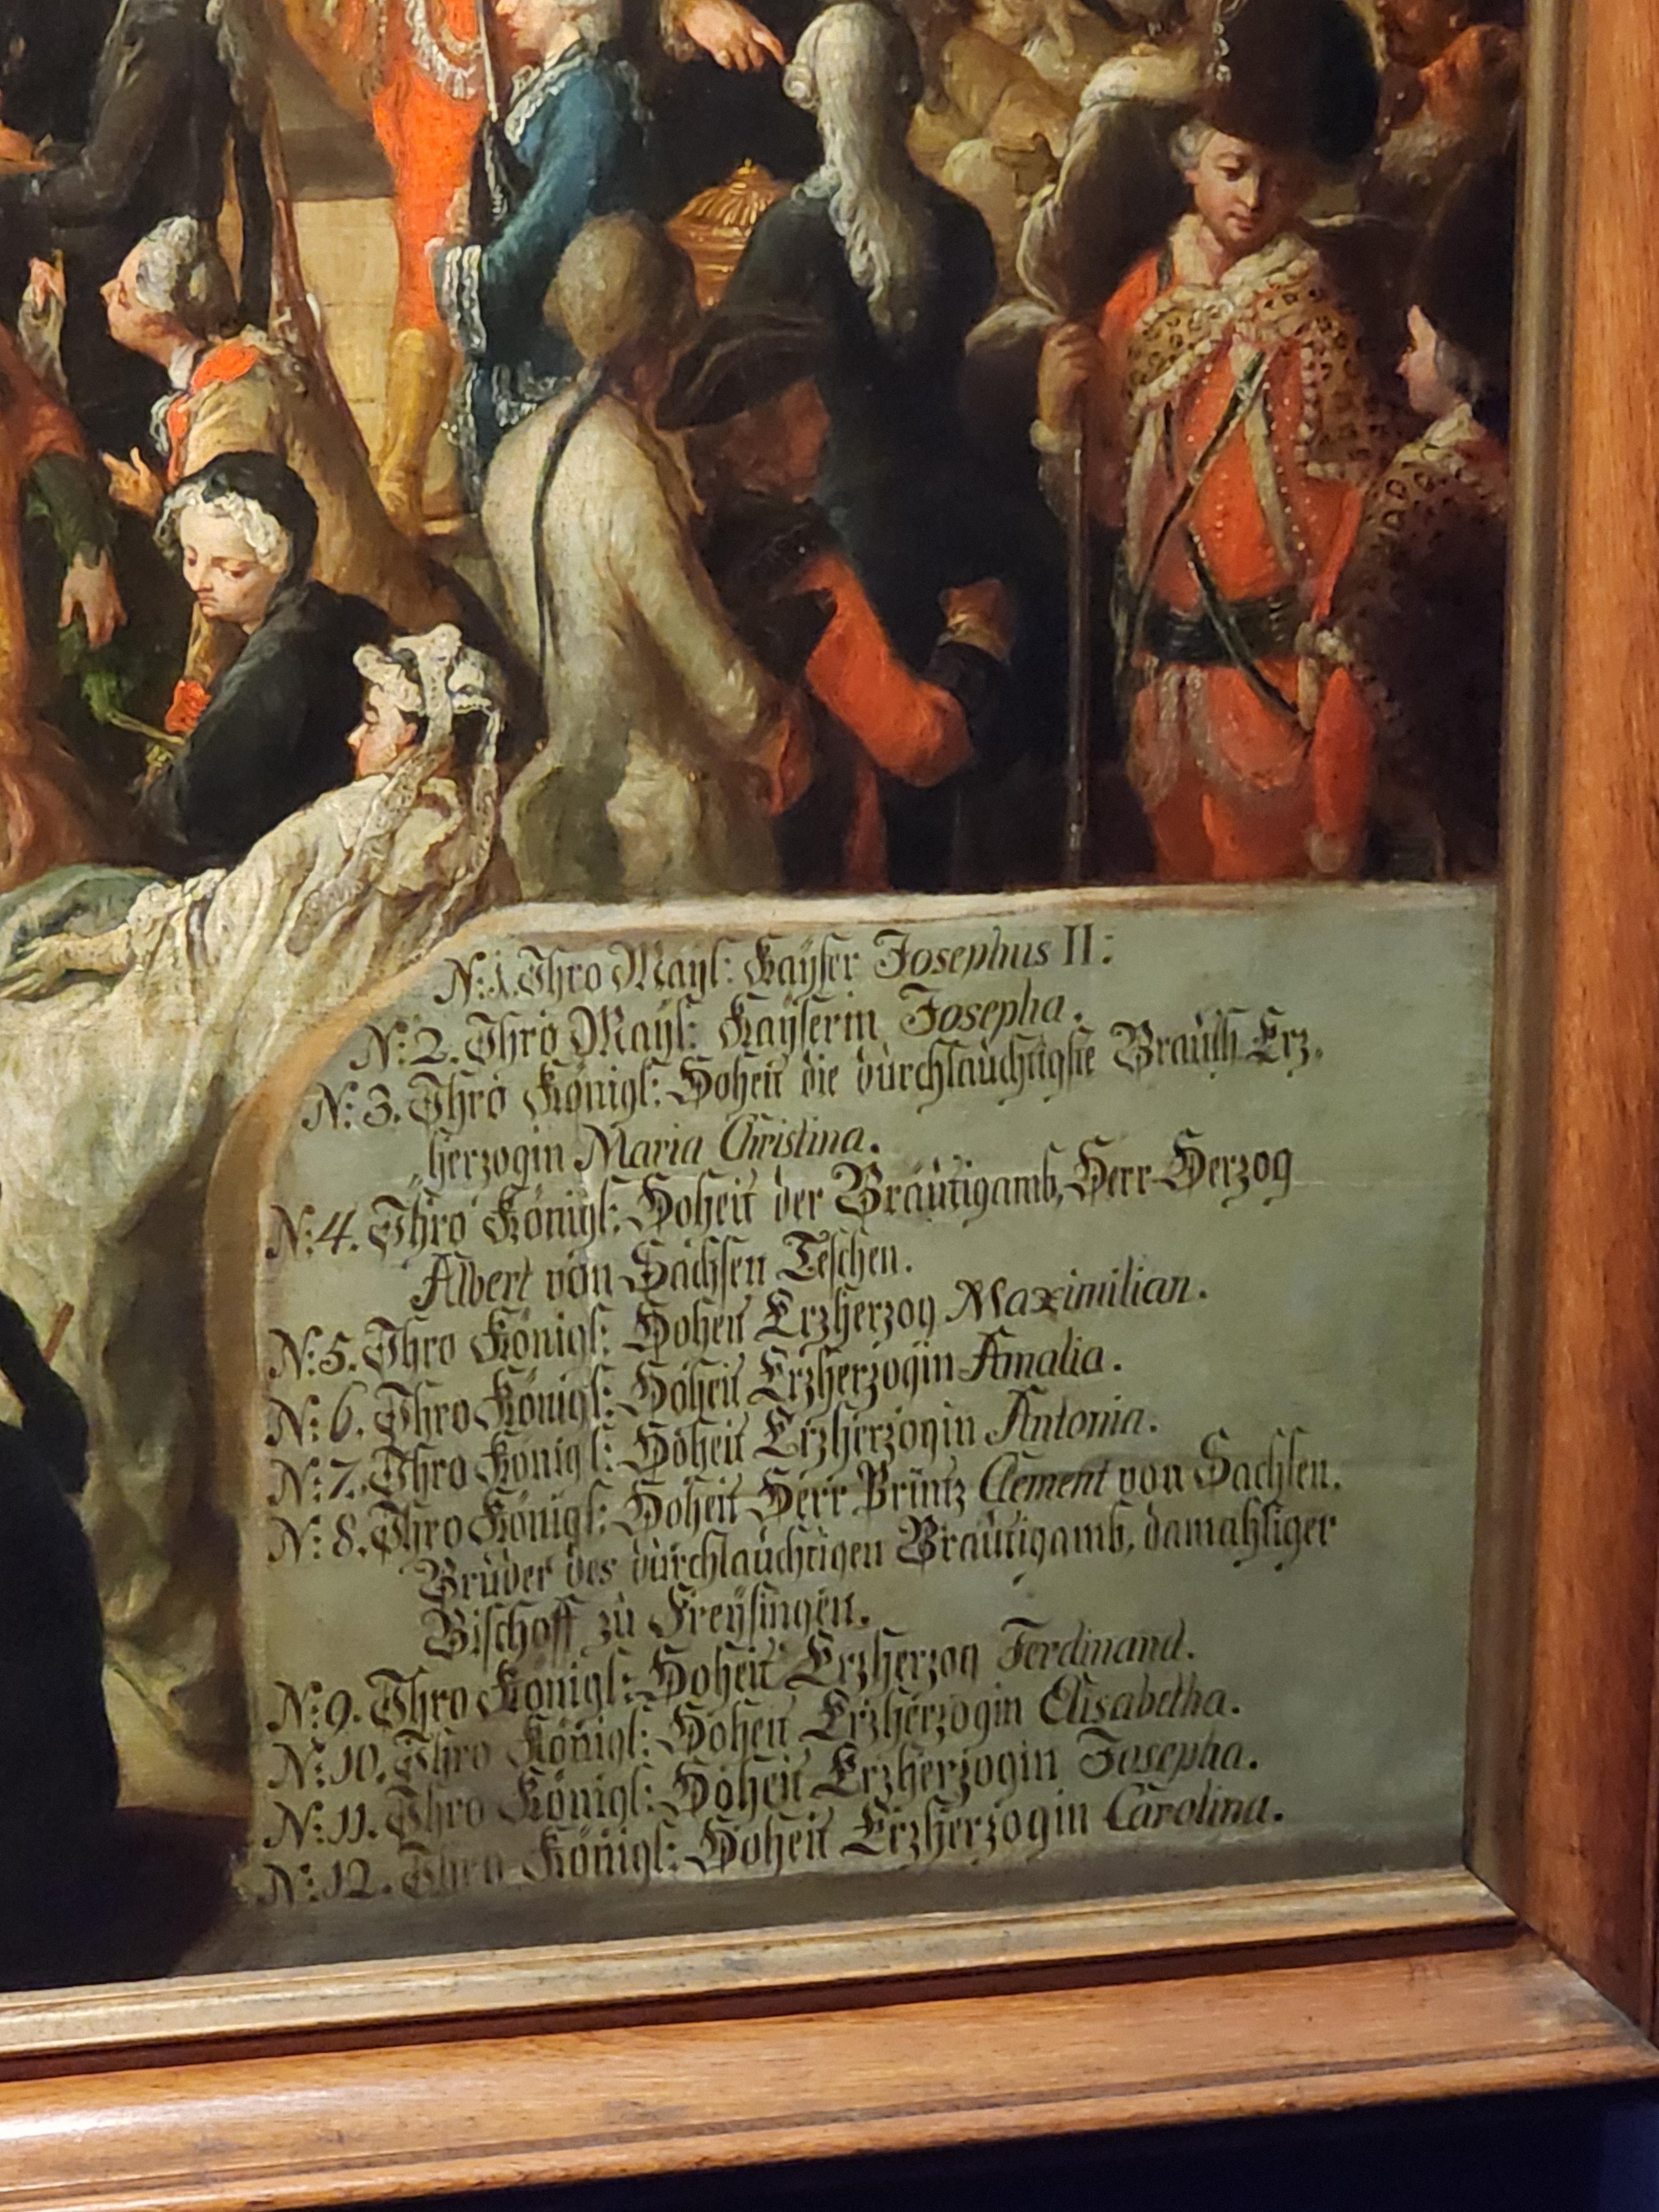 N: 1. Ihro Mayst: Kayser Josephus II:
N: 2. Ihro Mayst: Kayserin Josepha.
N: 3. Ihro Königl: Hoheit die durchlauchtigste Brauth Erz-
herzogin Maria Christina.
N: 4. Ihro Königl: Hoheit der Bräutigamb, Herr Herzog
Albert von Sachsen Teschen.
N: 5. Ihro Königl: Hoheit Erzherzog Maximilian.
N: 6. Ihro Königl: Hoheit Erzherzogin Amalia.
N: 7. Ihro Königl: Hoheit Erzherzogin Antonia.
N: 8. Ihro Königl: Hoheit Herr Printz Clement von Sachsen.
Bruder des durchlauchtigen Bräutigamb, damahliger
Bischoff zu Freysingen.
N: 9. Ihro Königl: Hoheit Erzherzog Ferdinand.
N: 10. Ihro Königl: Hoheit Erzherzogin Elisabetha.
N: 11. Ihro Königl: Hoheit Erzherzogin Josepha.
N: 12. Ihro Königl: Hoheit Erzherzogin Carolina.